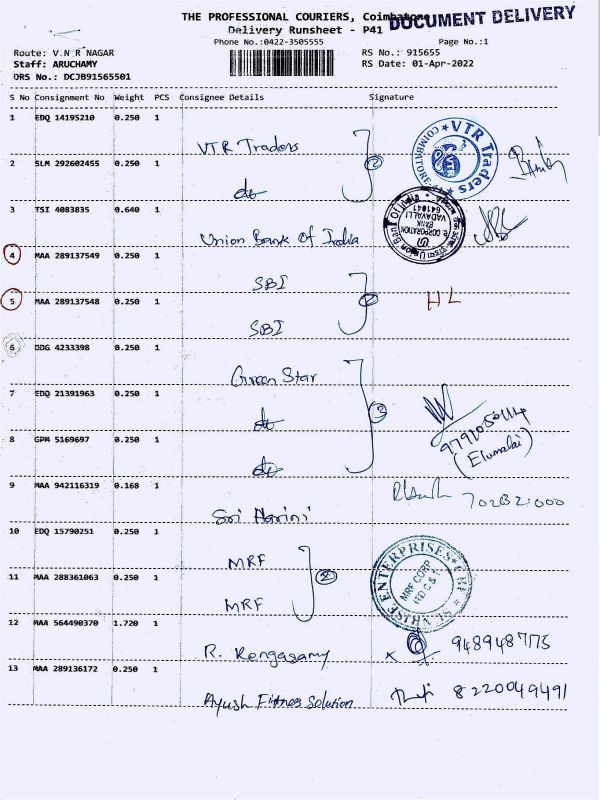 THE PROFESSIONAL COURIERS, Coimbatore
DOCUMENT DELIVERY
Delivery Runsheet - P41
Phone No.:0422-3505555
Page No.:1
Route: V.N R NAGAR
RS No.: 915655
Staff: ARUCHAMY
RS Date: 01-Apr-2022
DRS No.: DCJB91565501
S No Consignment No Weight PCS Consignee Details Signature
1 EDQ 14195210 0.250 1
VTR Traders
2 SLM 292602455 0.250 1
do
2
COIMBATORE VTR Traders
3 TSI 4083835 0.640 1
Union Bank Of India
Union Bank Of India
e CORPORATION
BANK
VADAVALLI
641041
4 MAA 289137549 0.250 1
SBI
5 MAA 289137548 0.250 1
SBI
2
HL
6 DDG 4233398 0.250 1
Green Star
7 EDQ 21391963 0.250 1
do
3
8 GPM 5169697 0.250 1
do
(Elumalai)
9 MAA 942116319 0.168 1
Sri Harini
10 EDQ 15790251 0.250 1
MRF
11 MAA 288361063 0.250 1
MRF
2
ENTERPRISES
MRF CORP
12 MAA 564490370 1.720 1
R. Rengasamy
x
13 MAA 289136172 0.250 1
Ayush Fitness Solution
8220049491